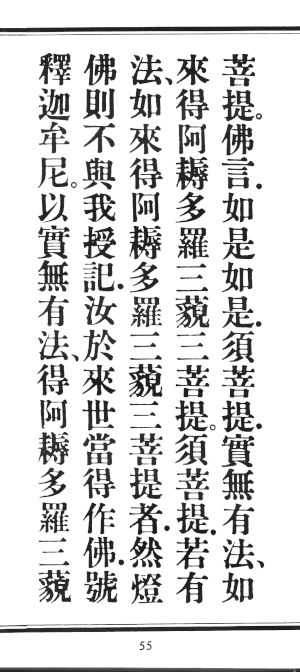 菩提。佛言.如是如是.須菩提.實無有法、如
來得阿耨多羅三藐三菩提。須菩提.若有
法、如來得阿耨多羅三藐三菩提者.然燈
佛則不與我授記.汝於來世當得作佛.號
釋迦牟尼。以實無有法、得阿耨多羅三藐
55